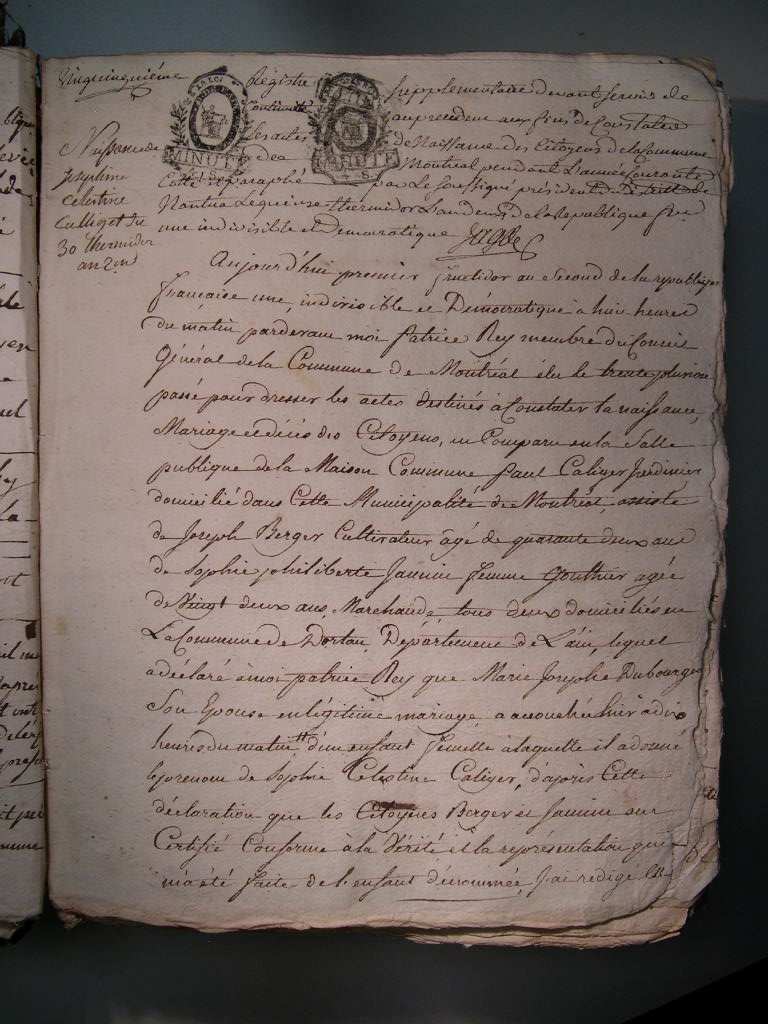 Vingtcinquième
Naissance de
Josephine
Celestine
du
30 thermidor
an 2.me
LA LOI
MINUTE
MINUTE
Régistre supplémentaire devant servir de
continuité au précédent aux fins de Constater
les actes de Naissance des Citoyens de la Commune
de Montréal pendant l'année Courante
Cotté et paraphé par Le Soussigné président District de
Nantua Le quinze thermidor L'an deux de la Republique fse
une indivisible et Democratique
Aujourd'hui premier fructidor an Second de la republique
française une, indivisible et Démocratique à huit heures
du matin pardevant moi patrice Rey membre du Conseil
Général de la Commune de Montréal élu le trente pluviose
passé pour dresser les actes destinés à Constater la naissance,
Mariage et décès des Citoyens, en Comparu en la Salle
publique de la Maison Commune paul Caliger Jardinier
domicilié dans Cette Municipalité de Montréal, assisté
de Joseph Berger Cultivateur âgé de quarante deux ans
de Sophie philiberte Jannin femme Gouthier agée
de Vingt deux ans, Marchande tous deux domiciliés en
La Commune de Dortan, Département de L'ain, lequel
a déclaré à moi patrice Rey que Marie Josephe Dubourget
Son Epouse en légitime mariage a accouchée hier à dix
heures du matin d'un enfant femelle à laquelle il a donné
le prenom de Sophie Celestine Caliger, d'après Cette
déclaration que les Citoyens Berger et Jannin ont
Certifié Conforme à la Vérité et la représentation qui
m'a été faite de l'enfant dénommée, J'ai redigé En